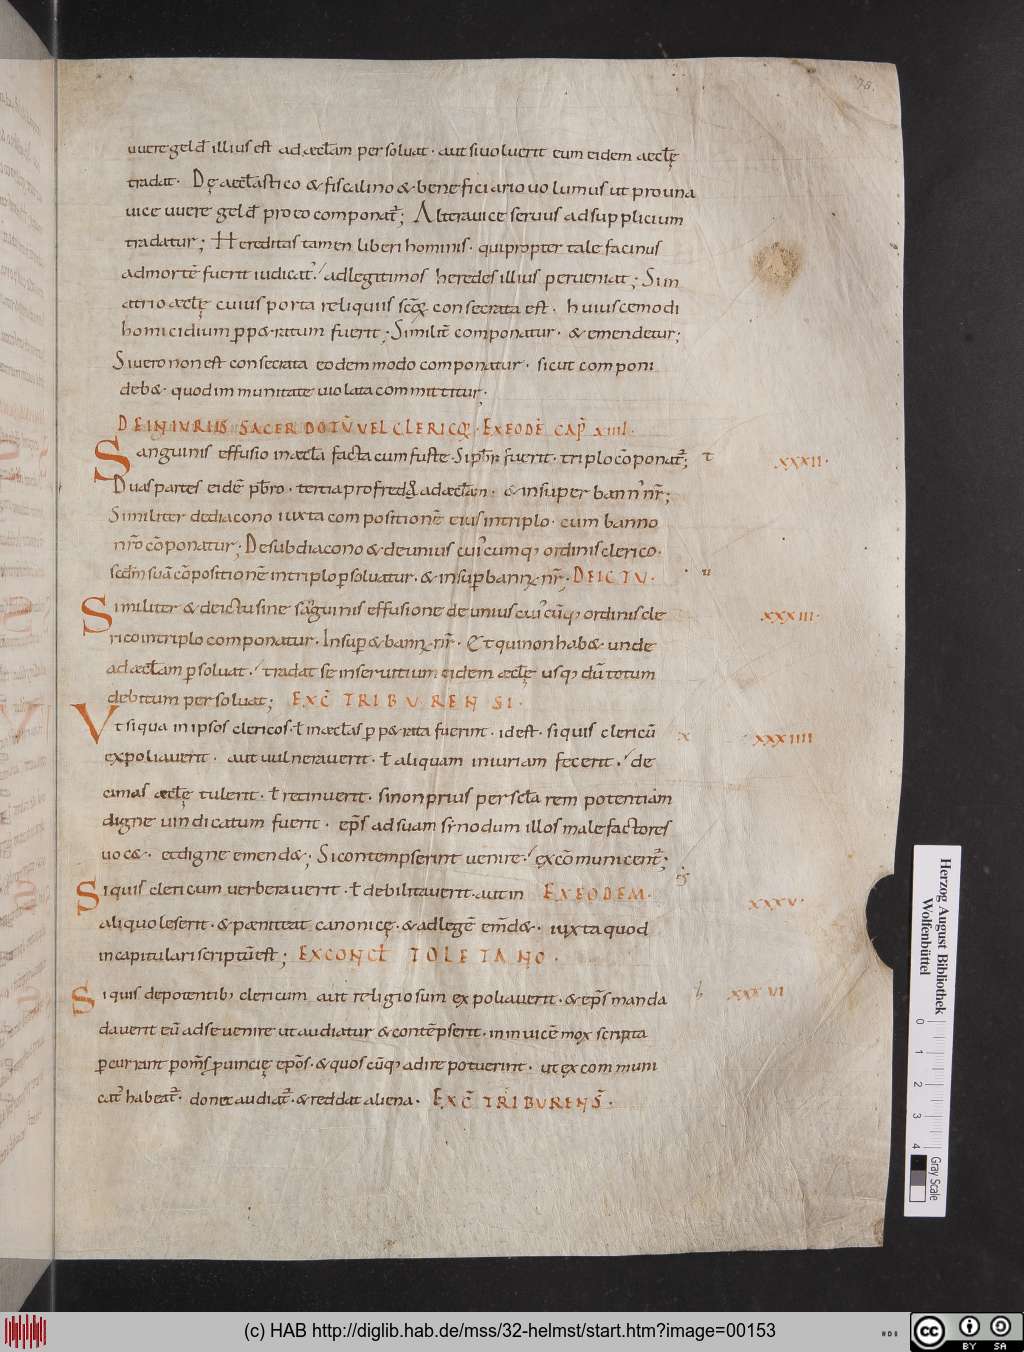 78.
uueregeld̄ illius est ad æccl̄am persoluat· aut si uoluerit eum eidem aeccl̄ę
tradat· Dę aeccl̄astico & fiscalino & beneficiario uolumus ut pro una
uice uueregeld̄ pro eo componat᷑; Altera uice seruus ad supplicium
tradatur; Hereditas tamen liberi hominis· qui propter tale facinus
ad mortē fuerit iudicat᷑·/ ad legitimos heredes illius perueniat; Si in
atrio æccl̄ę cuius porta reliquiis sc̄ōꝝ consecrata est· huiuscemodi
homicidium ꝑp&ratum fuerit; Similit̄ componatur· & emendetur;
Si uero non est consecrata eodem modo componatur· sicut componi
deb&· quod inmunitate uiolata committitur;
DE INIURIIS SACERDOTŪ VEL CLERICOꝜ· EX EODĒ CAP̄ XIIII·
Sanguinis effusio in æccl̄a facta cum fuste· Si pb̄r fuerit· triplo cōponat᷑; t
XXXII·
Duas partes eidē pb̄ro· tertia pro fredo ad æccl̄am· & insuper bannū nr̄;
Similiter de diacono iuxta compositionē eius in triplo· cum banno
nr̄o cōponatur; De subdiacono & de unius cuiuscumq; ordinis clerico·
scd̄m suā cōpositionē in triplo ꝑsoluatur· & insuꝑ bannū nr̄· DE ICTU· u
Similiter & de ictu sine sanguinis effusione de unius cuiuscūq; ordinis cle
XXXIII·
rico in triplo componatur· Insuꝑ & bannū nr̄· Et qui non hab& unde
ad æccl̄am ꝑsoluat·/ tradat se in seruitium eidem æccl̄ę usq; dū totum
debitum persoluat; EXC̄ TRIBURENSI·
Ut siqua in ipsos clericos· ł in æccl̄as ꝑp&rata fuerint· id est· si quis clericū x
XXXIIII
expoliauerit· aut uulnerauerit· ł aliquam iniuriam fecerit·/ de
cimas æccl̄ę tulerit· ł retinuerit· si non prius per sc̄larem potentiam
digne uindicatum fuerit· ep̄s ad suam synodum illos malefactores
uoc&· et digne emend&; Si contempserint uenire·/ excōmunicent᷑;
Siquis clericum uerberauerit· ł debilitauerit· aut in EX EODEM·
XXXV·
aliquo leserit· & pæniteat canonicę· & ad legē em̄d&· iuxta quod
in capitulari scriptū est; EX CONCL̄ TOLETANO·
Siquis de potentib; clericum aut religiosum expoliauerit· & ep̄s manda
XXXVI
dauerit eū ad se uenire ut audiatur & contēpserit· inuicē mox scripta
ꝑcurrant ꝑ om̄s ꝓuincię ep̄os· & quoscūq; adire potuerint· ut excommuni
cat᷑ habeat᷑· donec audiat᷑· & reddat aliena· EXC̄ TRIBURENS̄·
Herzog August Bibliothek
Wolfenbüttel
0 1 2 3 4
Gray Scale
(c) HAB http://diglib.hab.de/mss/32-helmst/start.htm?image=00153
cc BY SA